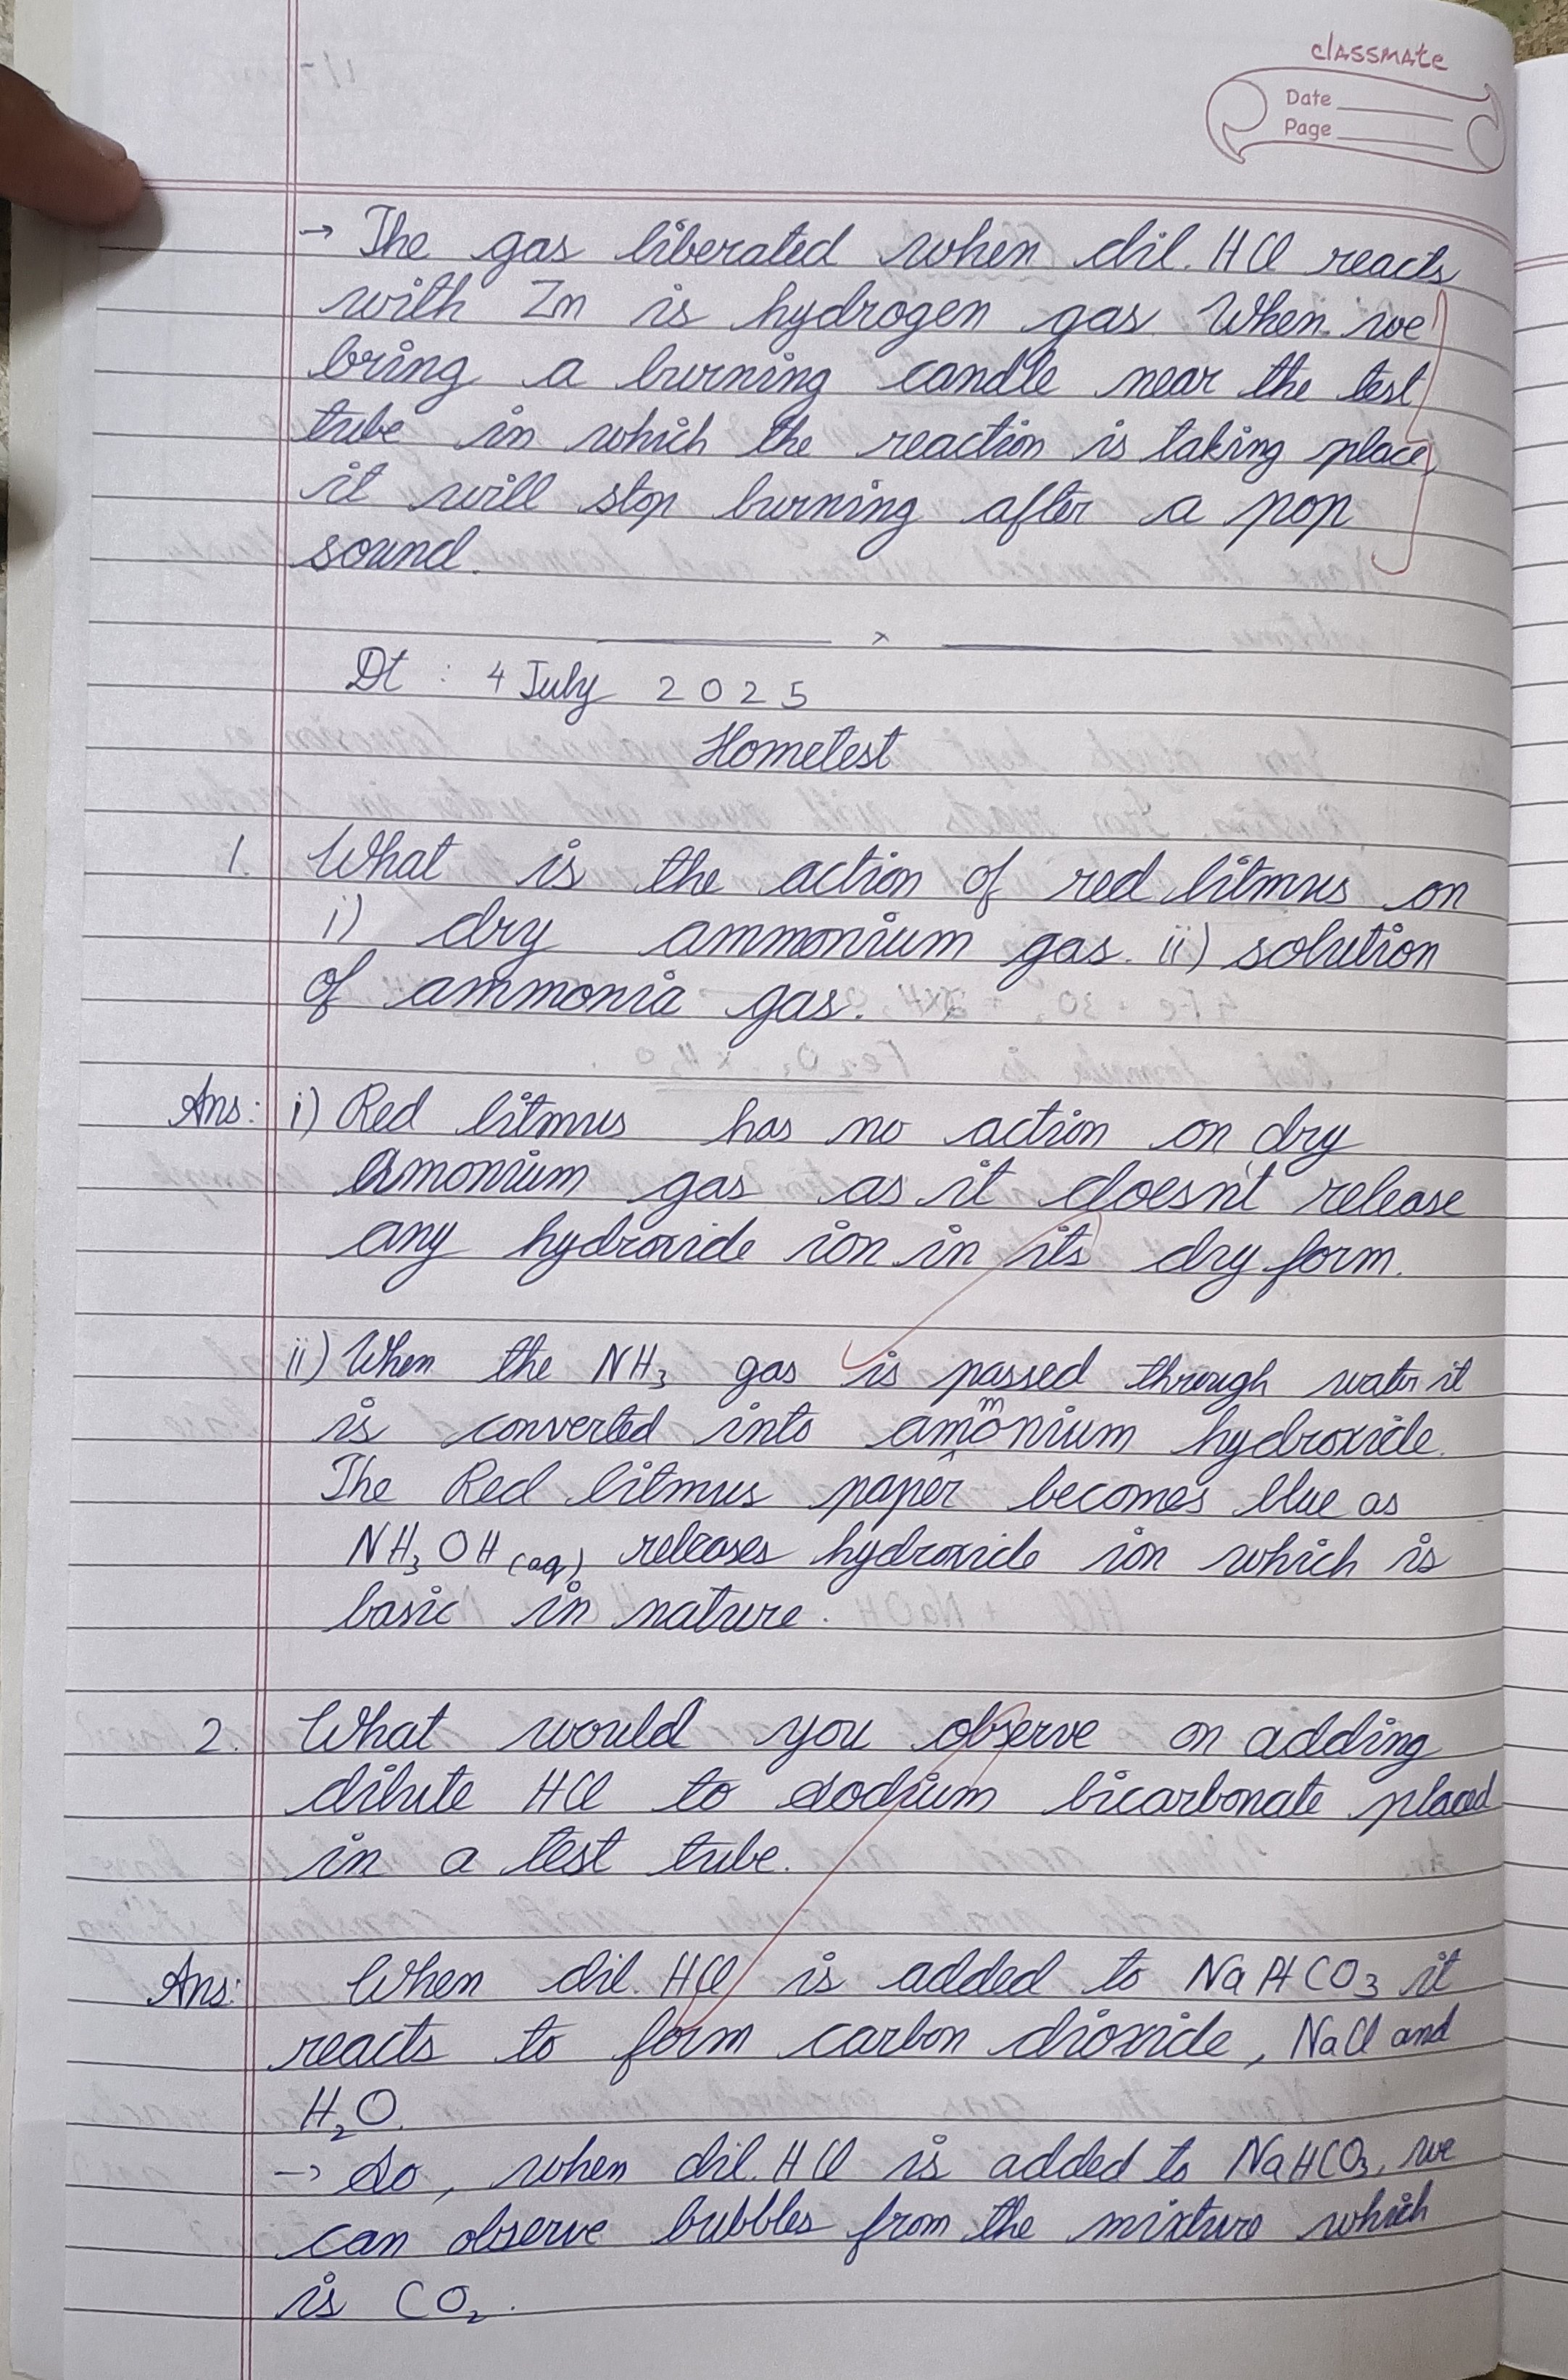 classmate
Date
Page
→ The gas liberated when dil. HCl reacts
with Zn is hydrogen gas. When we
bring a burning candle near the test
tube in which the reaction is taking place,
it will stop burning after a pop
sound.
x
Dt : 4 July 2025
Hometest
1. What is the action of red litmus on
i) dry ammonium gas. ii) solution
of ammonia gas.
Ans: i) Red litmus has no action on dry
amonium gas as it doesn't release
any hydroxide ion in its dry form.
ii) When the NH₃ gas is passed through water it
is converted into ammonium hydroxide.
The Red litmus paper becomes blue as
NH₃OH (aq) releases hydroxide ion which is
basic in nature.
2. What would you observe on adding
dilute HCl to sodium bicarbonate placed
in a test tube.
Ans: When dil. HCl is added to NaHCO₃ it
reacts to form carbon dioxide, NaCl and
H₂O.
→ So, when dil. HCl is added to NaHCO₃, we
can observe bubbles from the mixture which
is CO₂.